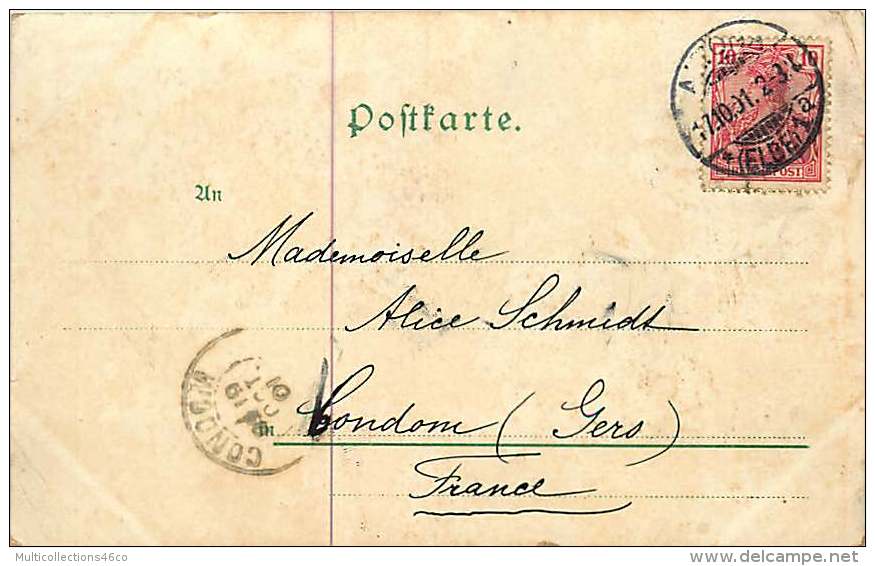 10 10
17.10.01. 2-3
* (ELBE) 1a
Postkarte.
An
Mademoiselle
Alice Schmidt
CONDOM
19
OCT
01
in Condom (Gers)
France
Multicollections46co
© www.delcampe.net